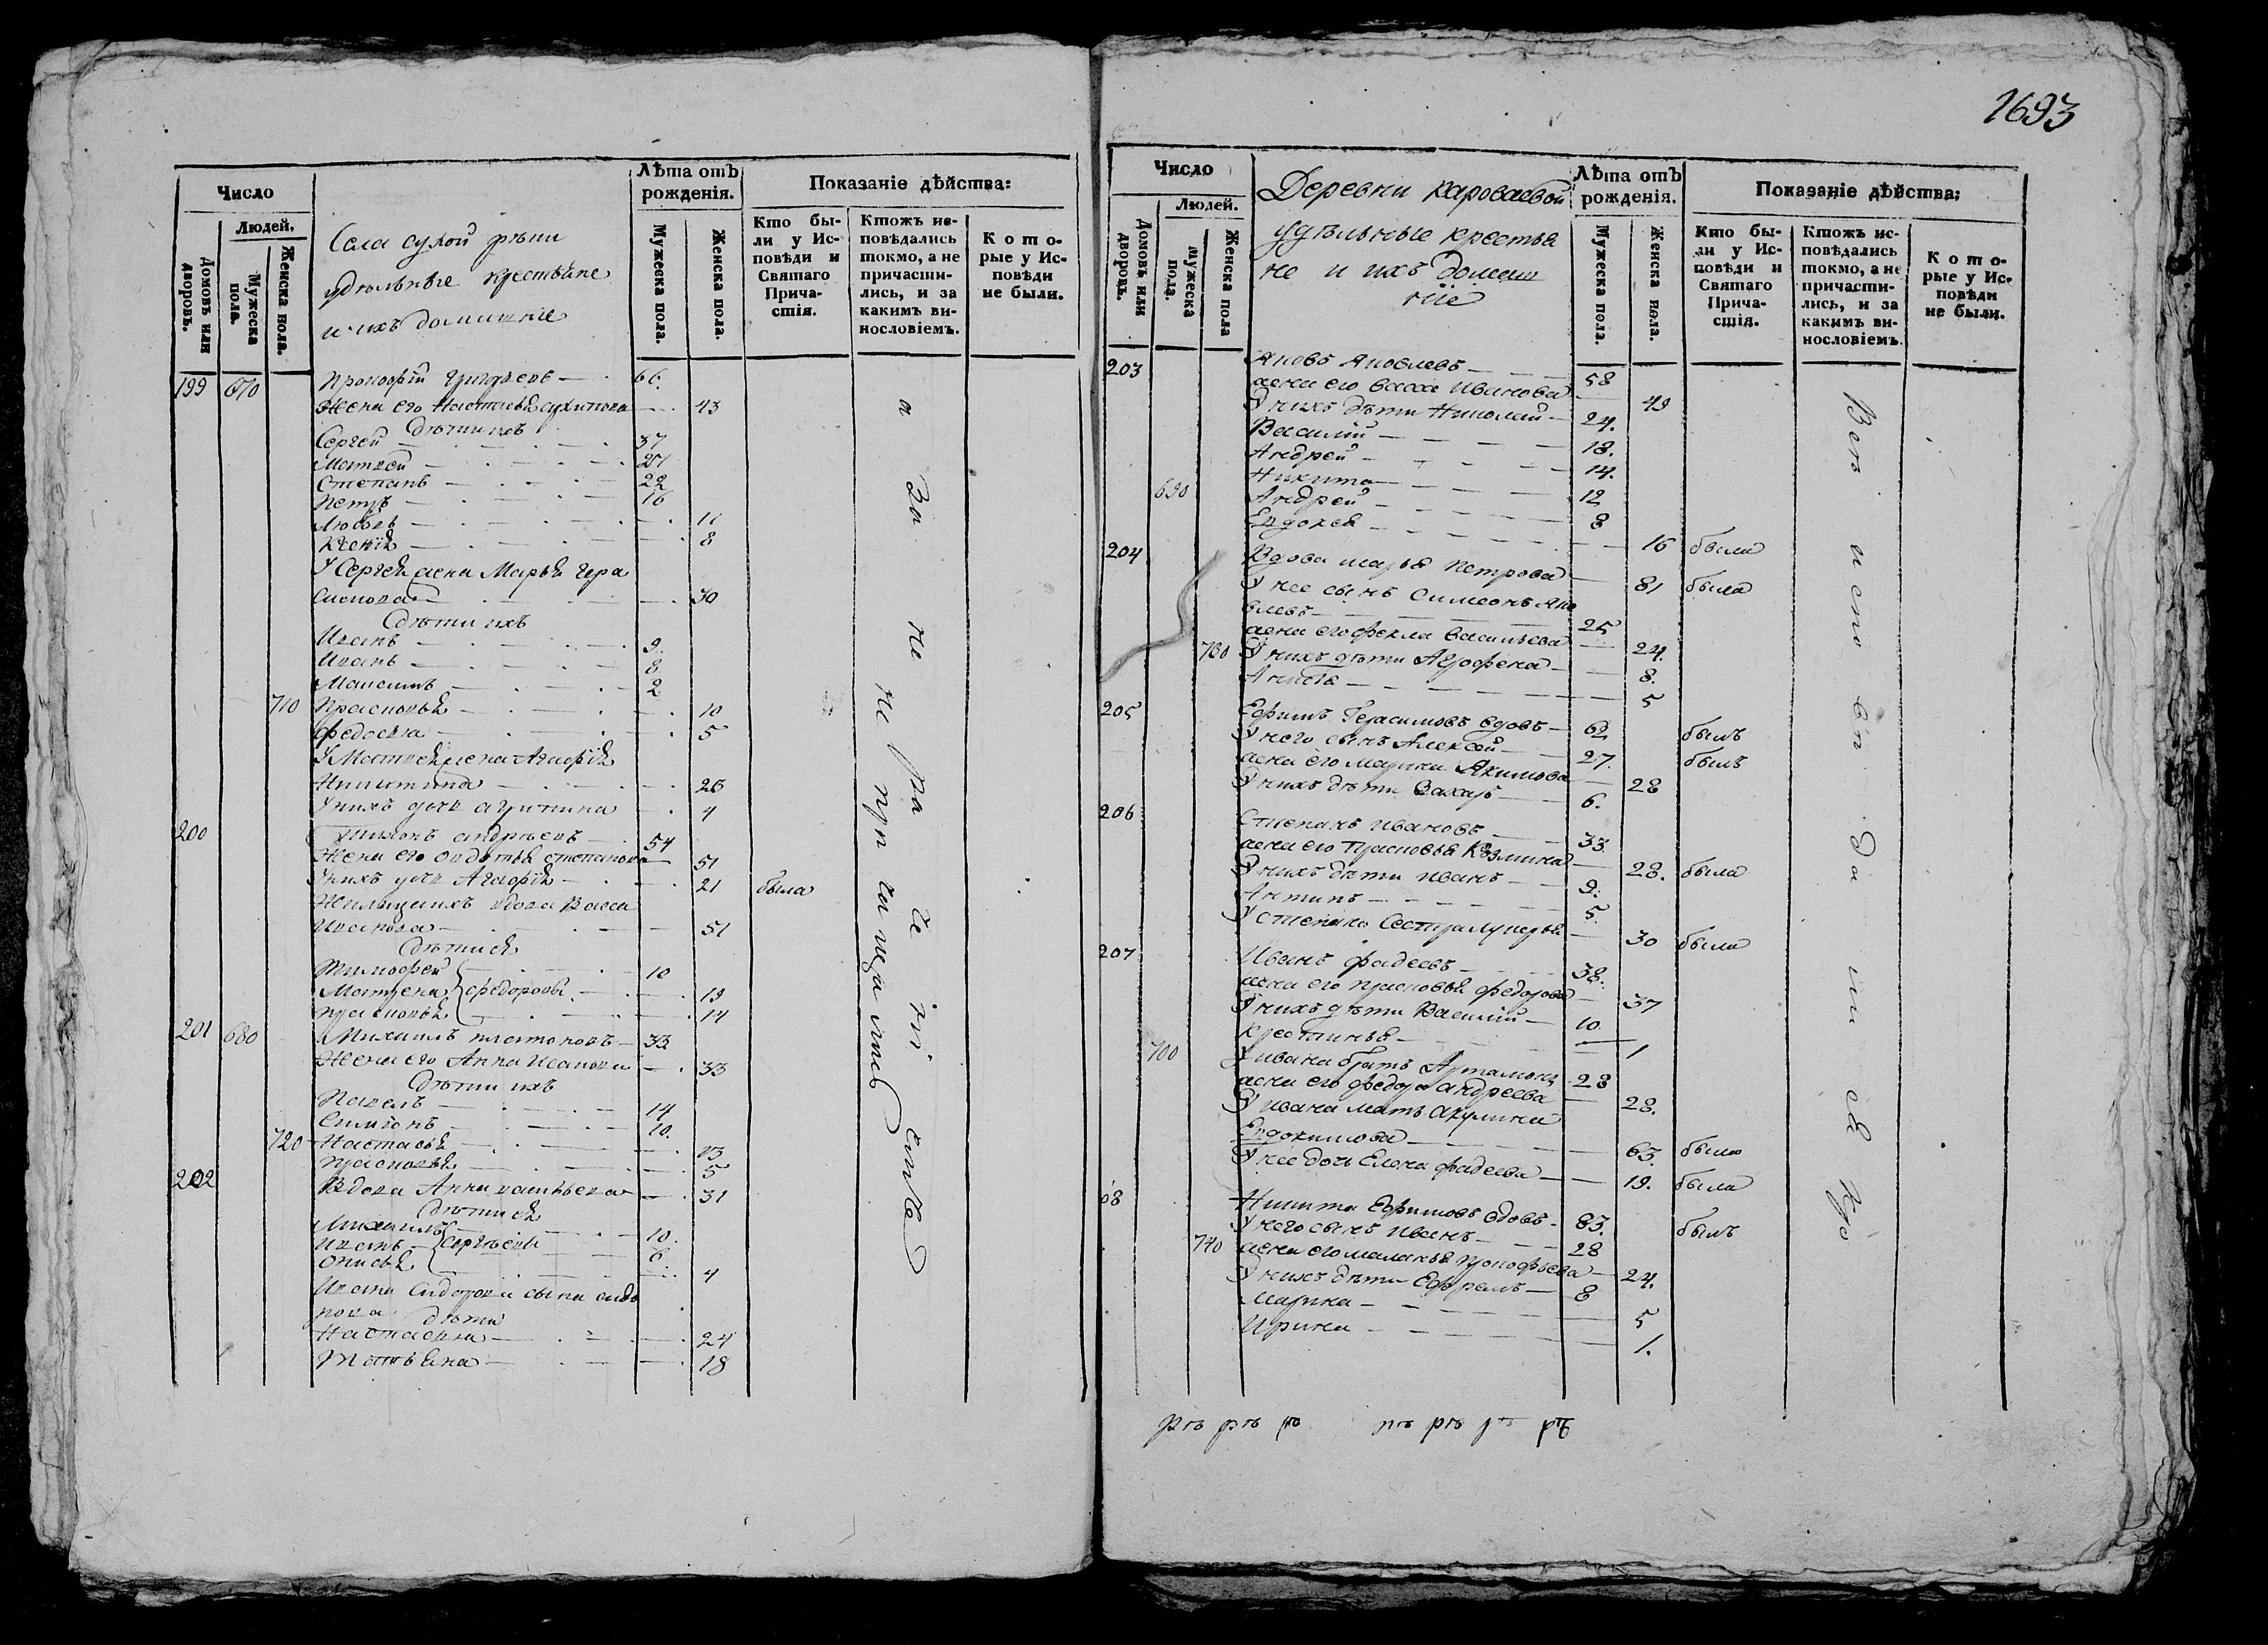 1693
Число
Людей.
Домовъ или дворовъ.
Мужеска пола.
Женска пола.
Села сухой рѣпи
удѣльные крестьяне
и ихъ домашніе
Лѣта отъ рожденія.
Мужеска пола.
Женска пола.
Показаніе дѣйства:
Кто бы-
ли у Ис-
повѣди и
Святаго
Прича-
стія.
Ктожъ ис-
повѣдались
токмо, а не
причасти-
лись, и за
какимъ ви-
нословіемъ.
Кото-
рые у Ис-
повѣди
не были.
199 670 Прокофій Григорьевъ 66.
Жена его Настасья 43
Дѣти ихъ
Сергей 37
Матвей
Степанъ 22
Петръ 16
Любовь
Ксенія 8
У Сергея жена Марья Гера
симова 30
Дѣти ихъ
Иванъ 9.
Иванъ 8.
Максимъ 2
710 Прасковья 10
Федосья 5
У Матвея жена Агафія
Никитина 26
У нихъ дочь 4
200 андреевъ 54
Жена его Авдотья степанова 51
У нихъ дочь Агафія 21 была
вдова Васса
Иванова 51
Дѣти ея
Тимофей 10
Матрена Федоровы 19
Прасковья 14
201 680 Михаилъ платоновъ 33
Жена его Анна Иванова 33
Дѣти ихъ
Павелъ 14
Симіонъ 10.
720 Настасья
Прасковья 5
202 Вдова Анна васильева 31
Дѣти ея
Михаилъ 10.
Иванъ Сергѣевы 6.
Анисья 4
Ивана Сидорова сына сидо
рова дѣти
Настасья 24
Татьяна 18
Число
Людей.
Домовъ или дворовъ.
Мужеска пола.
Женска пола
Деревни Короваевой
удѣльные крестья
не и ихъ домаш
ніе
Лѣта отъ рожденія.
Мужеска пола.
Женска пола.
Показаніе дѣйства:
Кто бы-
ли у Ис-
повѣди и
Святаго
Прича-
стія.
Ктожъ ис-
повѣдались
токмо, а не
причасти-
лись, и за
какимъ ви-
нословіемъ.
Кото-
рые у Ис-
повѣди
не были.
203 Яковъ Яковлевъ 58
жена его васса Иванова 49
У нихъ дѣти Николай 24.
Василій 18.
Андрей 14.
Никита 12
690 Андрей 8
Евдокея 16 была
204 Вдова марья Петрова 81 была
У нее сынъ Симеонъ Яко
влевъ 25
жена его фекла васильева 24.
730 У нихъ дѣти Агрофена 8.
Анисья 5
205 Ефимъ Герасимовъ вдовъ 62 былъ
У него сынъ Алексей 27. былъ
жена его марина Якимова 28
У нихъ дѣти Захаръ 6.
206 Степанъ Ивановъ 33.
жена его Прасковья Козмина 28. была
У нихъ дѣти иванъ 9.
Антипъ 5.
У степана сестра Лукерья 30 была
207 Иванъ фадеевъ 38.
жена его прасковья федорова 37
У нихъ дѣти Василій 10.
Крестинья 1
700 У ивана братъ Артамонъ 28
жена его федора андреева 28.
У ивана мать акулина
Евдокимова 63. была
У нее дочь Елена фадеева 19. была
08 Никита Ефимовъ вдовъ 83. былъ
У него сынъ иванъ 28
740 жена его маланья прокофьева 24.
У нихъ дѣти Ефремъ 8
Марина 5
Ирина 1.